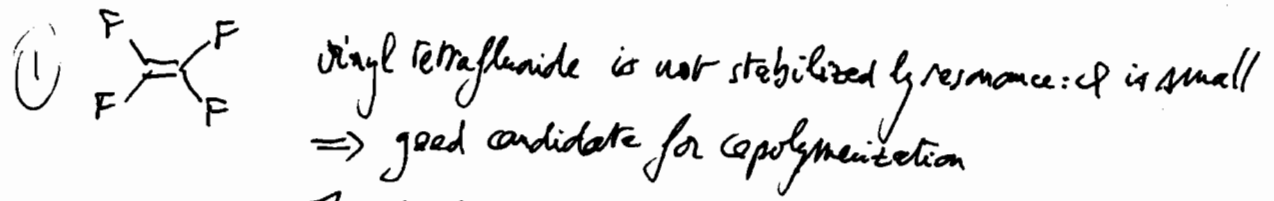 ① F F
F F
vinyl tetrafluoride is not stabilized by resonance: Q is small
=> good candidate for copolymerization